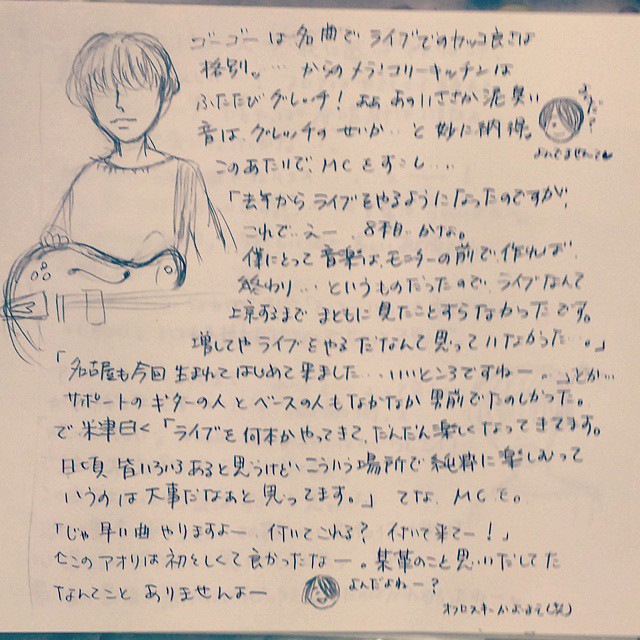 ゴーゴーは名曲でライブでのカッコ良さは
格別。… からのメランコリーキッチンは
ふたたびグレッチ! あぁ あのいささか泥臭い
音は、グレッチのせいか… と妙に納得。
よんでませんて♥
このあたりで、MCをすこし….
「去年からライブをやるようになったのですが、
これで…えー…8本目…かな。
僕にとって音楽は、モニターの前で作れば
終わり…というものだったので、ライブなんて
上京するまでまともに見たことすらなかったです。
増してやライブをやるだなんて思っていなかった…。」
「名古屋も今回生まれてはじめて来ました…いいところですねー。」とか…
サポートのギターの人とベースの人もなかなか男前でたのしかった。
で米津曰く「ライブを何本かやってきて、だんだん楽しくなってきてます。
日頃皆いろいろあると思うけど、こういう場所で純粋に楽しむって
いうのは大事だなぁと思ってます。」 てな、MCも。
「じゃ早い曲やりますよー、付いてこれる? 付いて来てー!」
↑このアオリは初々しくて良かったなー。某革のこと思いだしてた
なんてこと ありませんよー
よんだよねー?